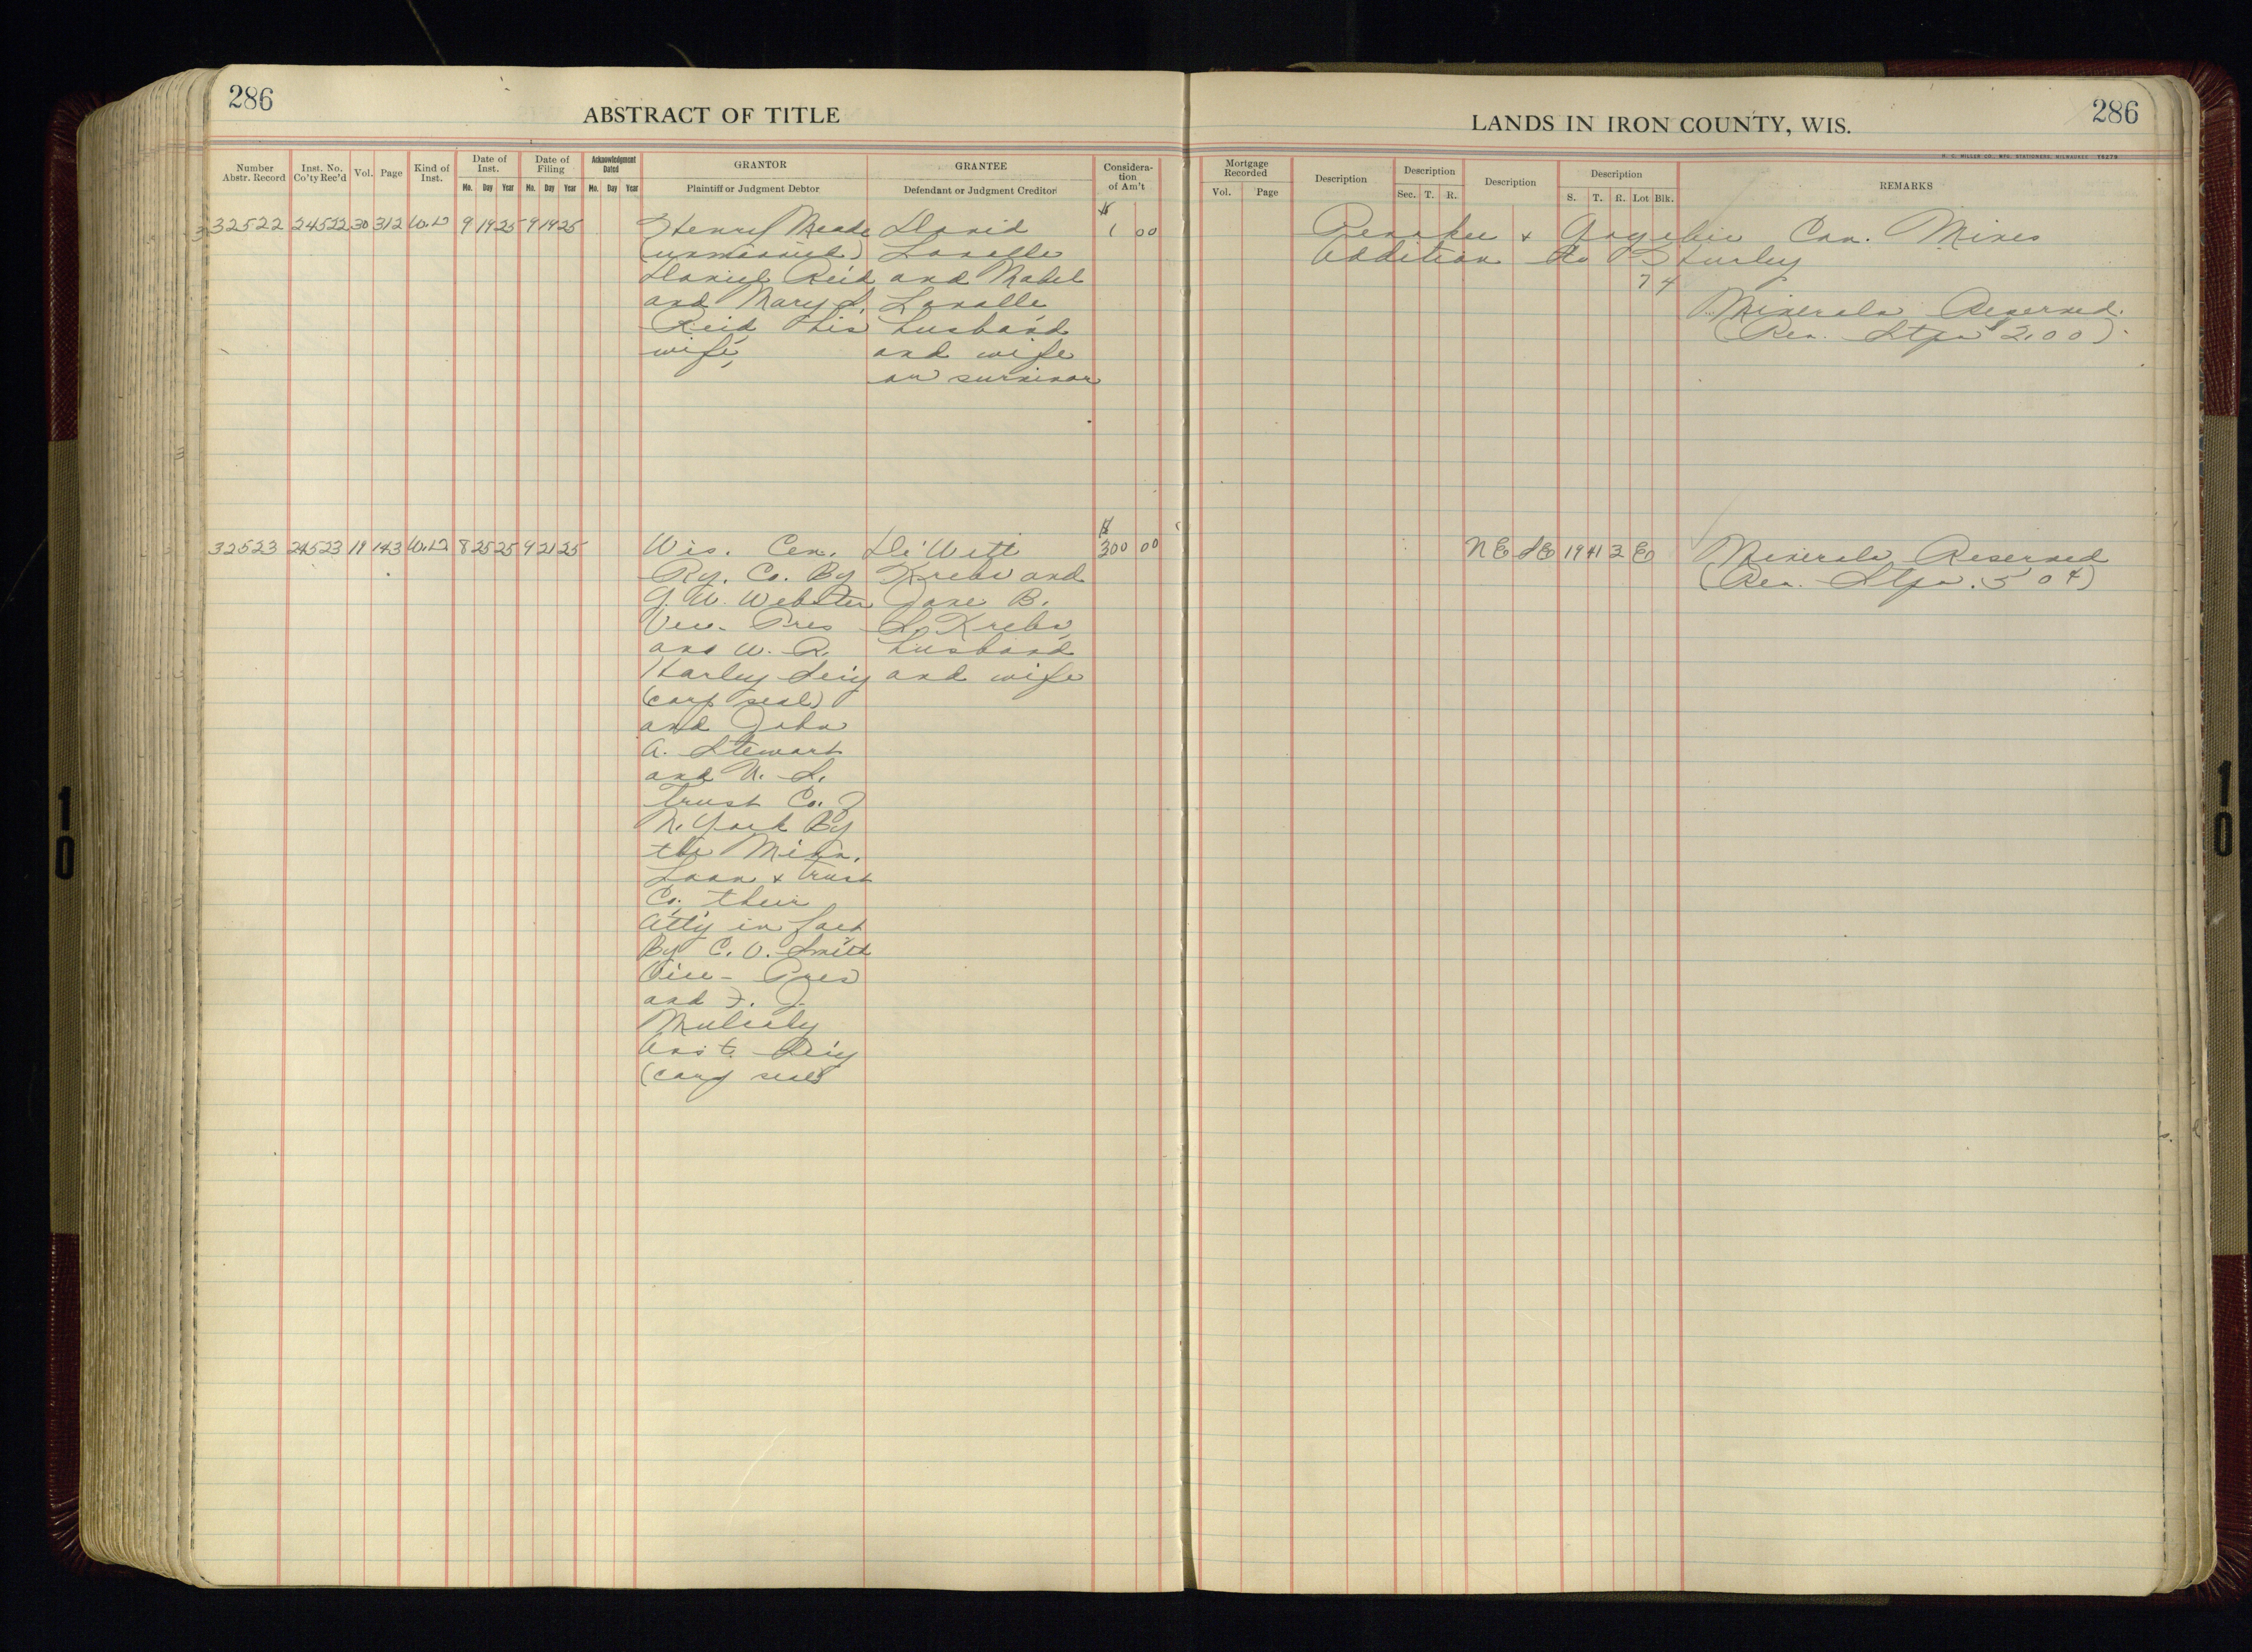 286
ABSTRACT OF TITLE
Number Abstr. Record
Inst. No. Co'ty Rec'd
Vol.
Page
Kind of Inst.
Date of Inst.
Mo. Day Year
Date of Filing
Mo. Day Year
Acknowledgment Dated
Mo. Day Year
GRANTOR
Plaintiff or Judgment Debtor
GRANTEE
Defendant or Judgment Creditor
Considera-
tion
of Am't
32522 24522 30 312 W.D 9 19 25 9 19 25 Henry Meade David $ 1 00
(unmarried) Lavalle
Daniel Reid and Mabel
and Mary L. Lavalle
Reid his husband
wife, and wife
or survivor
32523 24523 19 143 W.D 8 25 25 9 21 25 Wis. Cen. De Witt $ 300 00
Ry. Co. By Krebs and
G. W. Webster Jane B.
Vice-Pres S. Krebs,
and W. R. husband
Harley Sec'y and wife
(corp seal)
and John
A. Stewart
and U. S.
Trust Co.
N. York By
the Minn.
Loan & Trust
Co. their
Att'y in fact
By C. V. Smith
Vice-Pres
and F. J.
Mulcahy
Asst. Sec'y
(corp seal)
286
LANDS IN IRON COUNTY, WIS.
H. C. MILLER CO., MFG. STATIONERS, MILWAUKEE Y6279
Mortgage Recorded
Vol. Page
Description
Description
Sec. T. R.
Description
Description
S. T. R. Lot Blk.
REMARKS
Penokee & Gogebic Con. Mines
Addition to Hurley
7 4
Minerals Reserved.
(Rev. Stps $2.00)
NE SE 19 41 3 E Minerals Reserved
(Rev. Stps. 50¢)
10
10